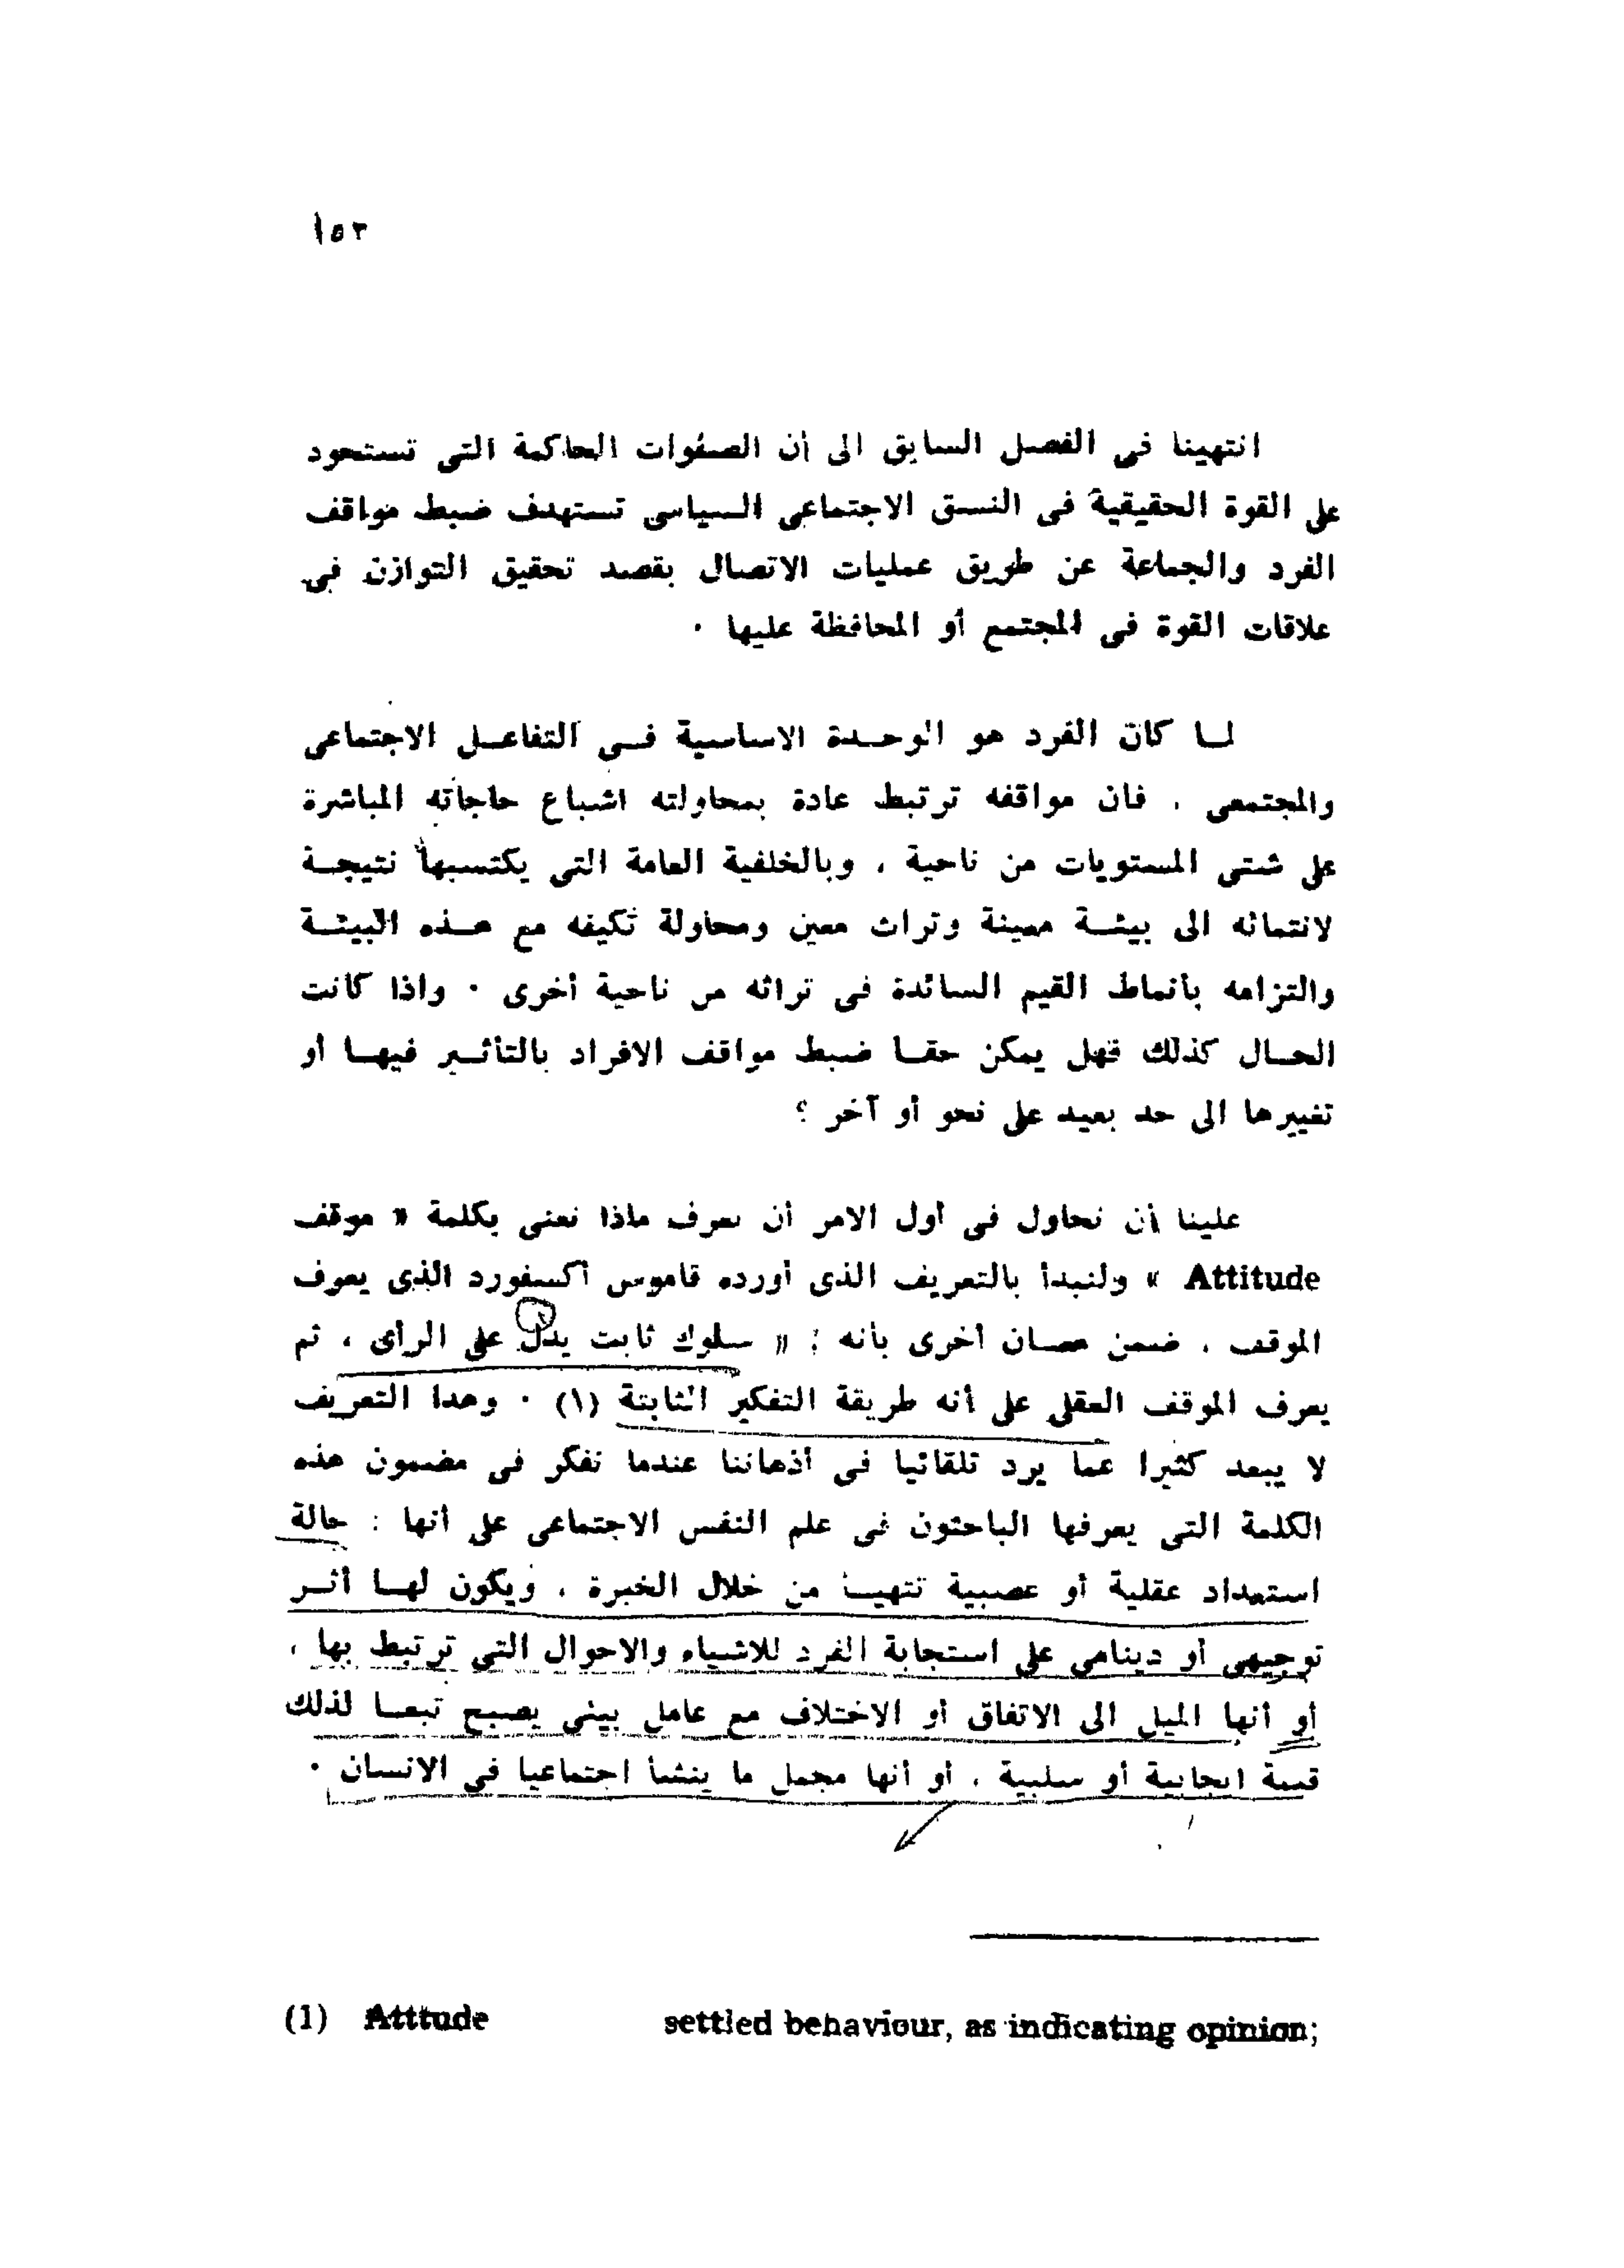 ١٥٣
انتهينا فى الفصل السابق الى أن الصفوات الحاكمة التى تستحوذ
على القوة الحقيقية فى النسق الاجتماعى السياسى تستهدف ضبط مواقف
الفرد والجماعة عن طريق عمليات الاتصال بقصد تحقيق التوازن فى
علاقات القوة فى المجتمع أو المحافظة عليها ٠
لما كان الفرد هو الوحدة الاساسية فى التفاعل الاجتماعى
والمجتمعى ، فان مواقفه ترتبط عادة بمحاولته اشباع حاجاته المباشرة
على شتى المستويات من ناحية ، وبالخلفية العامة التى يكتسبها نتيجة
لانتمائه الى بيئة معينة وتراث معين ومحاولة تكيفه مع هذه البيئة
والتزامه بأنماط القيم السائدة فى تراثه من ناحية أخرى ٠ واذا كانت
الحال كذلك فهل يمكن حقا ضبط مواقف الافراد بالتأثير فيها أو
تغييرها الى حد بعيد على نحو أو آخر ؟
علينا أن نحاول فى أول الامر أن نعرف ماذا نعنى بكلمة « موقف
Attitude » ولنبدأ بالتعريف الذى أورده قاموس أكسفورد الذى يعرف
الموقف ، ضمن معان أخرى بأنه : « سلوك ثابت يدل على الرأى ، ثم
يعرف الموقف العقلى على أنه طريقة التفكير الثابتة (١) ٠ وهذا التعريف
لا يبعد كثيرا عما يرد تلقائيا فى أذهاننا عندما نفكر فى مضمون هذه
الكلمة التى يعرفها الباحثون فى علم النفس الاجتماعى على أنها : حالة
استعداد عقلية أو عصبية تتهيأ من خلال الخبرة ، ويكون لها أثر
توجيهى أو دينامى على استجابة الفرد للاشياء والاحوال التى ترتبط بها ،
أو أنها الميل الى الاتفاق أو الاختلاف مع عامل بيئى يصبح تبعا لذلك
قيمة ايجابية أو سلبية ، أو أنها مجمل ما ينشأ اجتماعيا فى الانسان ٠
(1) Atttude settled behaviour, as indicating opinion;